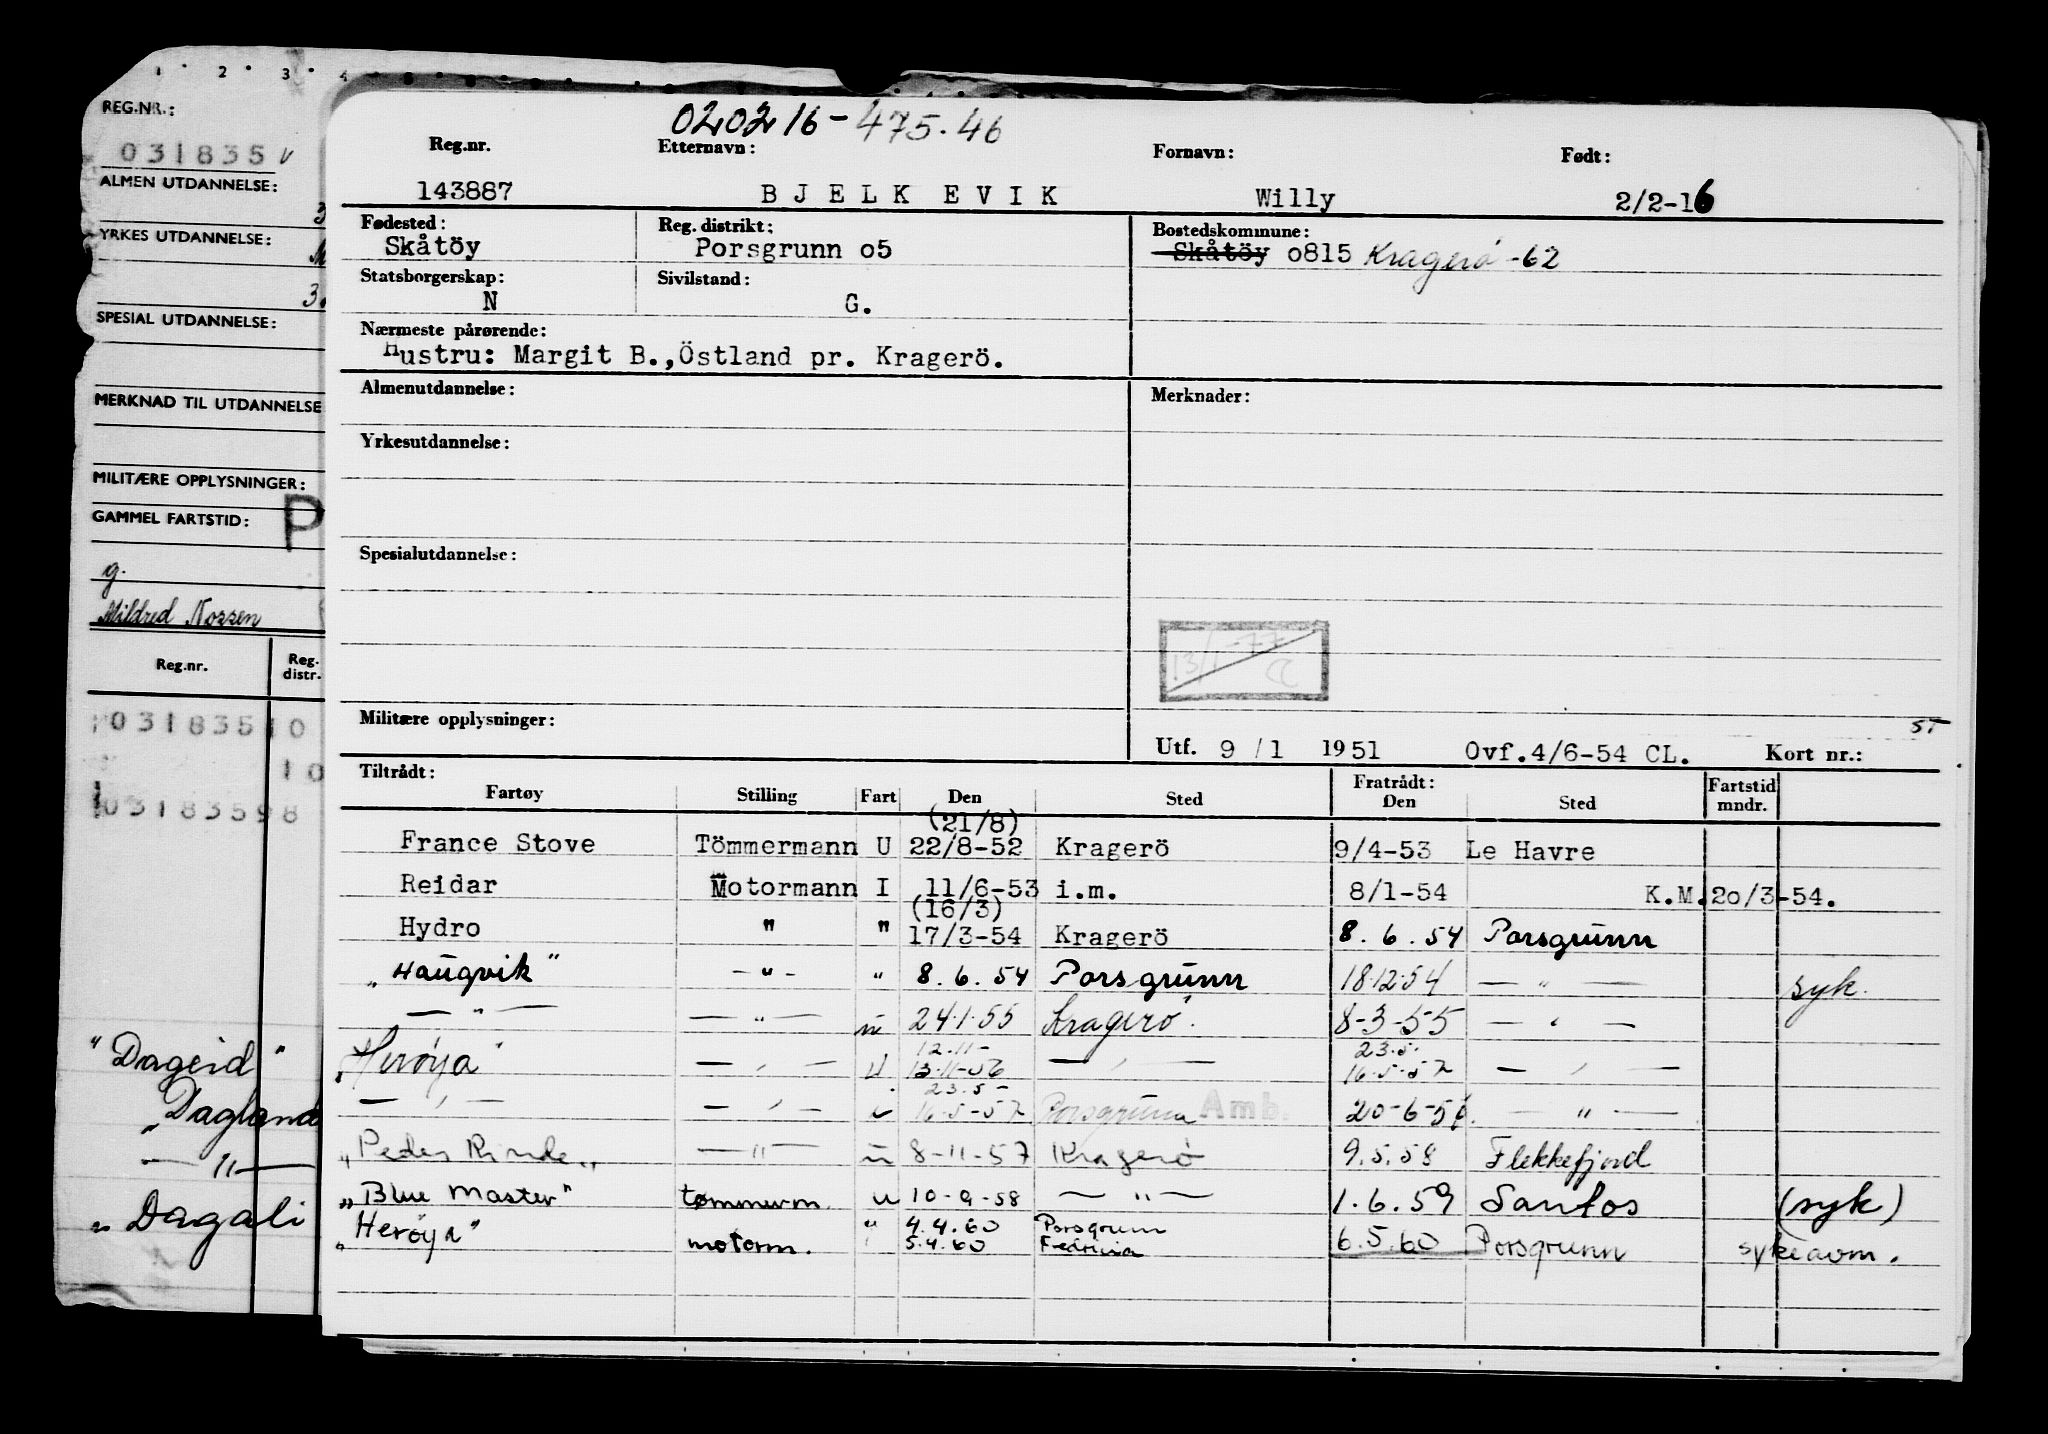 1 2 3 4
REG.NR.:
031835
ALMEN UTDANNELSE:
YRKES UTDANNELSE:
SPESIAL UTDANNELSE:
MERKNAD TIL UTDANNELSE
MILITÆRE OPPLYSNINGER:
GAMMEL FARTSTID: P
g.
Mildred Nossen
Reg.nr. Reg. distr.
031835 10
10
031835 98
"Dageid"
"Dagland
— " —
"Dagali
020216-475.46
Reg.nr. Etternavn: Fornavn: Født:
143887 BJELKEVIK Willy 2/2-16
Fødested: Reg. distrikt: Bostedskommune:
Skåtöy Porsgrunn o5 Skåtöy o815 Kragerö -62
Statsborgerskap: Sivilstand:
N G.
Nærmeste pårørende:
Hustru: Margit B.,Östland pr. Kragerö.
Almenutdannelse: Merknader:
Yrkesutdannelse:
Spesialutdannelse:
13/1-77
Militære opplysninger:
ST
Utf. 9/1 1951 Ovf.4/6-54 CL. Kort nr.:
Tiltrådt: Fratrådt: Fartstid
Fartøy Stilling Fart Den Sted Den Sted mndr.
(21/8)
France Stove Tömmermann U 22/8-52 Kragerö 9/4-53 Le Havre
Reidar Motormann I 11/6-53 i.m. 8/1-54 K.M.2o/3-54.
(16/3)
Hydro " " 17/3-54 Kragerö 8.6.54 Porsgrunn
"Haugvik" -"- " 8.6.54 Porsgrunn 18.12.54 — " — syk.
— " — — " — u 24.1.55 Kragerø. 8-3-55 — " —
12.11- 23.5.
"Herøya" — " — u 13.11-56 — " — 16.5.57 — " —
23.5-
— " — — " — u 16-5-57 Porsgrunn Amb. 20-6-57. — " —
"Peder Rinde" — " — u 8-11-57 Kragerø 9.5.58 Flekkefjord
"Blue Master" tømmerm. u 10-9-58 — " — 1.6.59 Santos (syk)
4.4.60 Porsgrunn
"Herøya" motorm. " 5.4.60 6.5.60 Porsgrunn sykeavm.